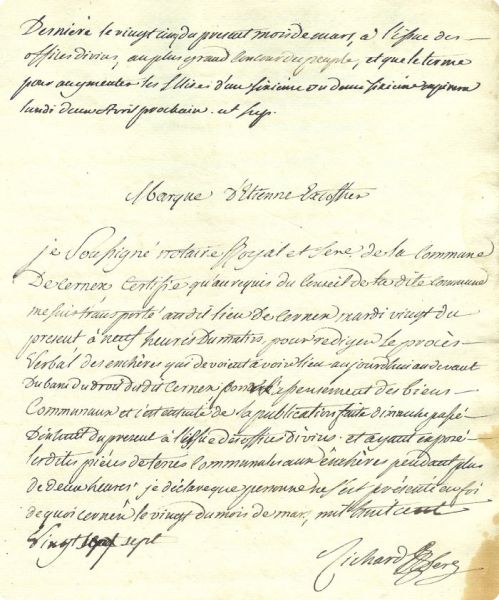 Derniere le vingt cinq du present mois de mars, a l'issue des
offices divins, au plus grand concour du peuple, et que le terme
pour augmenter les d'un sixieme ou demi sixieme expirera
lundi deux Avril prochain. ut sup.
Marque d'Etienne
je Soussigné notaire Royal et Sere de la Commune
De Cernex Certifie qu'au requis du Conseil de la dite Commune
me suis transporté au dit lieu De Cernex mardi vingt du
present à neuf heures du matin, pour rediger Le procès
Verbal des enchères qui devoient avoir lieu aujourdhui au devant
Du banc du droit du dit Cernex pour l'assensement des biens
Communaux et de la publication faite dimanche passé
du present à l'issue des offices divins. et ayant exposé
les dites pièces de terres Communales aux enchères pendant plus
de deux heures je déclare que personne ne s'est présenté en foi
de quoi Cernex le vingt du mois de mars, mil huit cent
Vingt sept
Richard